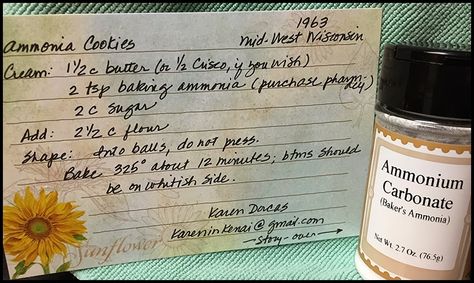 Ammonia Cookies
1963
Mid-West Wisconsin
Cream: 1 1/2 c butter (or 1/2 Crisco, if you wish)
2 tsp baking ammonia (purchase pharmacy)
2 c sugar
Add: 2 1/2 c flour
Shape: Into balls, do not press.
Bake 325° about 12 minutes; btms should
be on whitish side.
Karen Dorcas
Kareninkenai@gmail.com
Story-over →
Sunflower
Ammonium
Carbonate
(Baker's Ammonia)
Net Wt. 2.7 Oz. (76.5g)